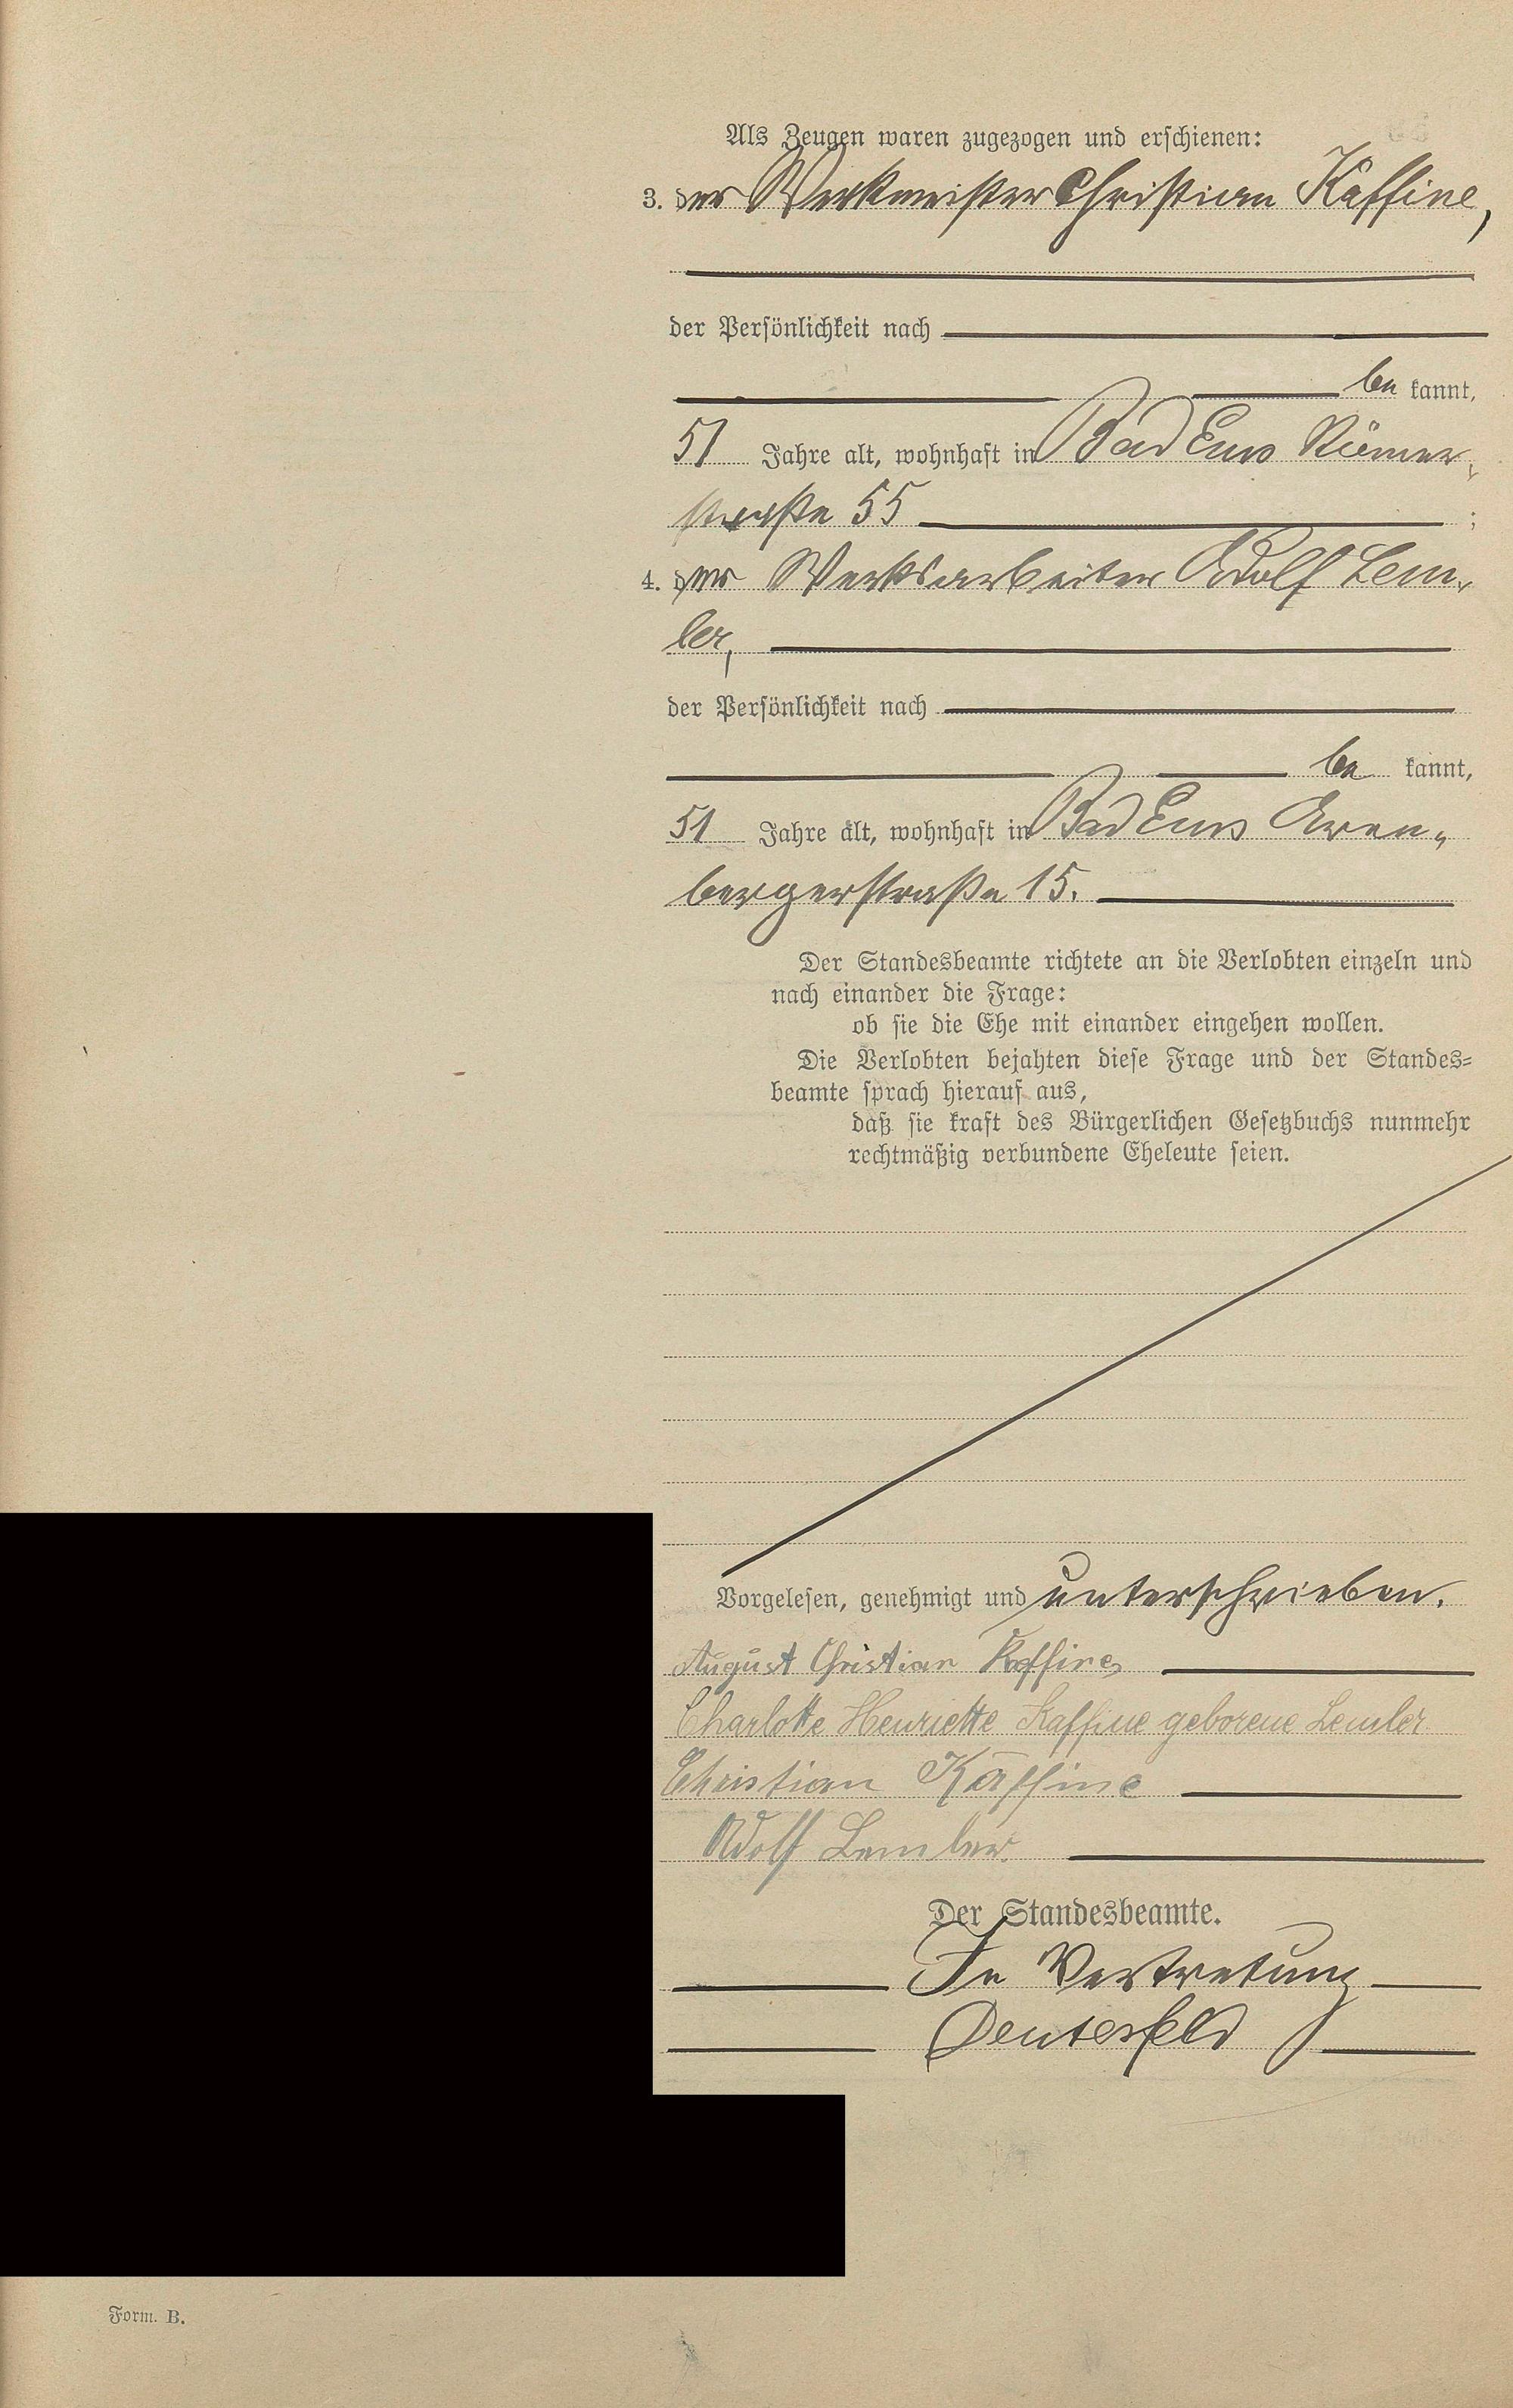 Als Zeugen waren zugezogen und erschienen:
3. der Werkmeister Christian Kaffine,
der Persönlichkeit nach
be kannt,
51 Jahre alt, wohnhaft in Bad Ems Römer-
straße 55 ;
4. der Werksarbeiter Adolf Lem-
ler,
der Persönlichkeit nach
be kannt,
51 Jahre alt, wohnhaft in Bad Ems Aren-
bergerstraße 15.
Der Standesbeamte richtete an die Verlobten einzeln und
nach einander die Frage:
ob sie die Ehe mit einander eingehen wollen.
Die Verlobten bejahten diese Frage und der Standes-
beamte sprach hierauf aus,
daß sie kraft des Bürgerlichen Gesetzbuchs nunmehr
rechtmäßig verbundene Eheleute seien.
Vorgelesen, genehmigt und unterschrieben.
August Christian Kaffine
Charlotte Henriette Kaffine geborene Lemler
Christian Kaffine
Adolf Lemler.
Der Standesbeamte.
In Vertretung
Deutesfeld
Form. B.